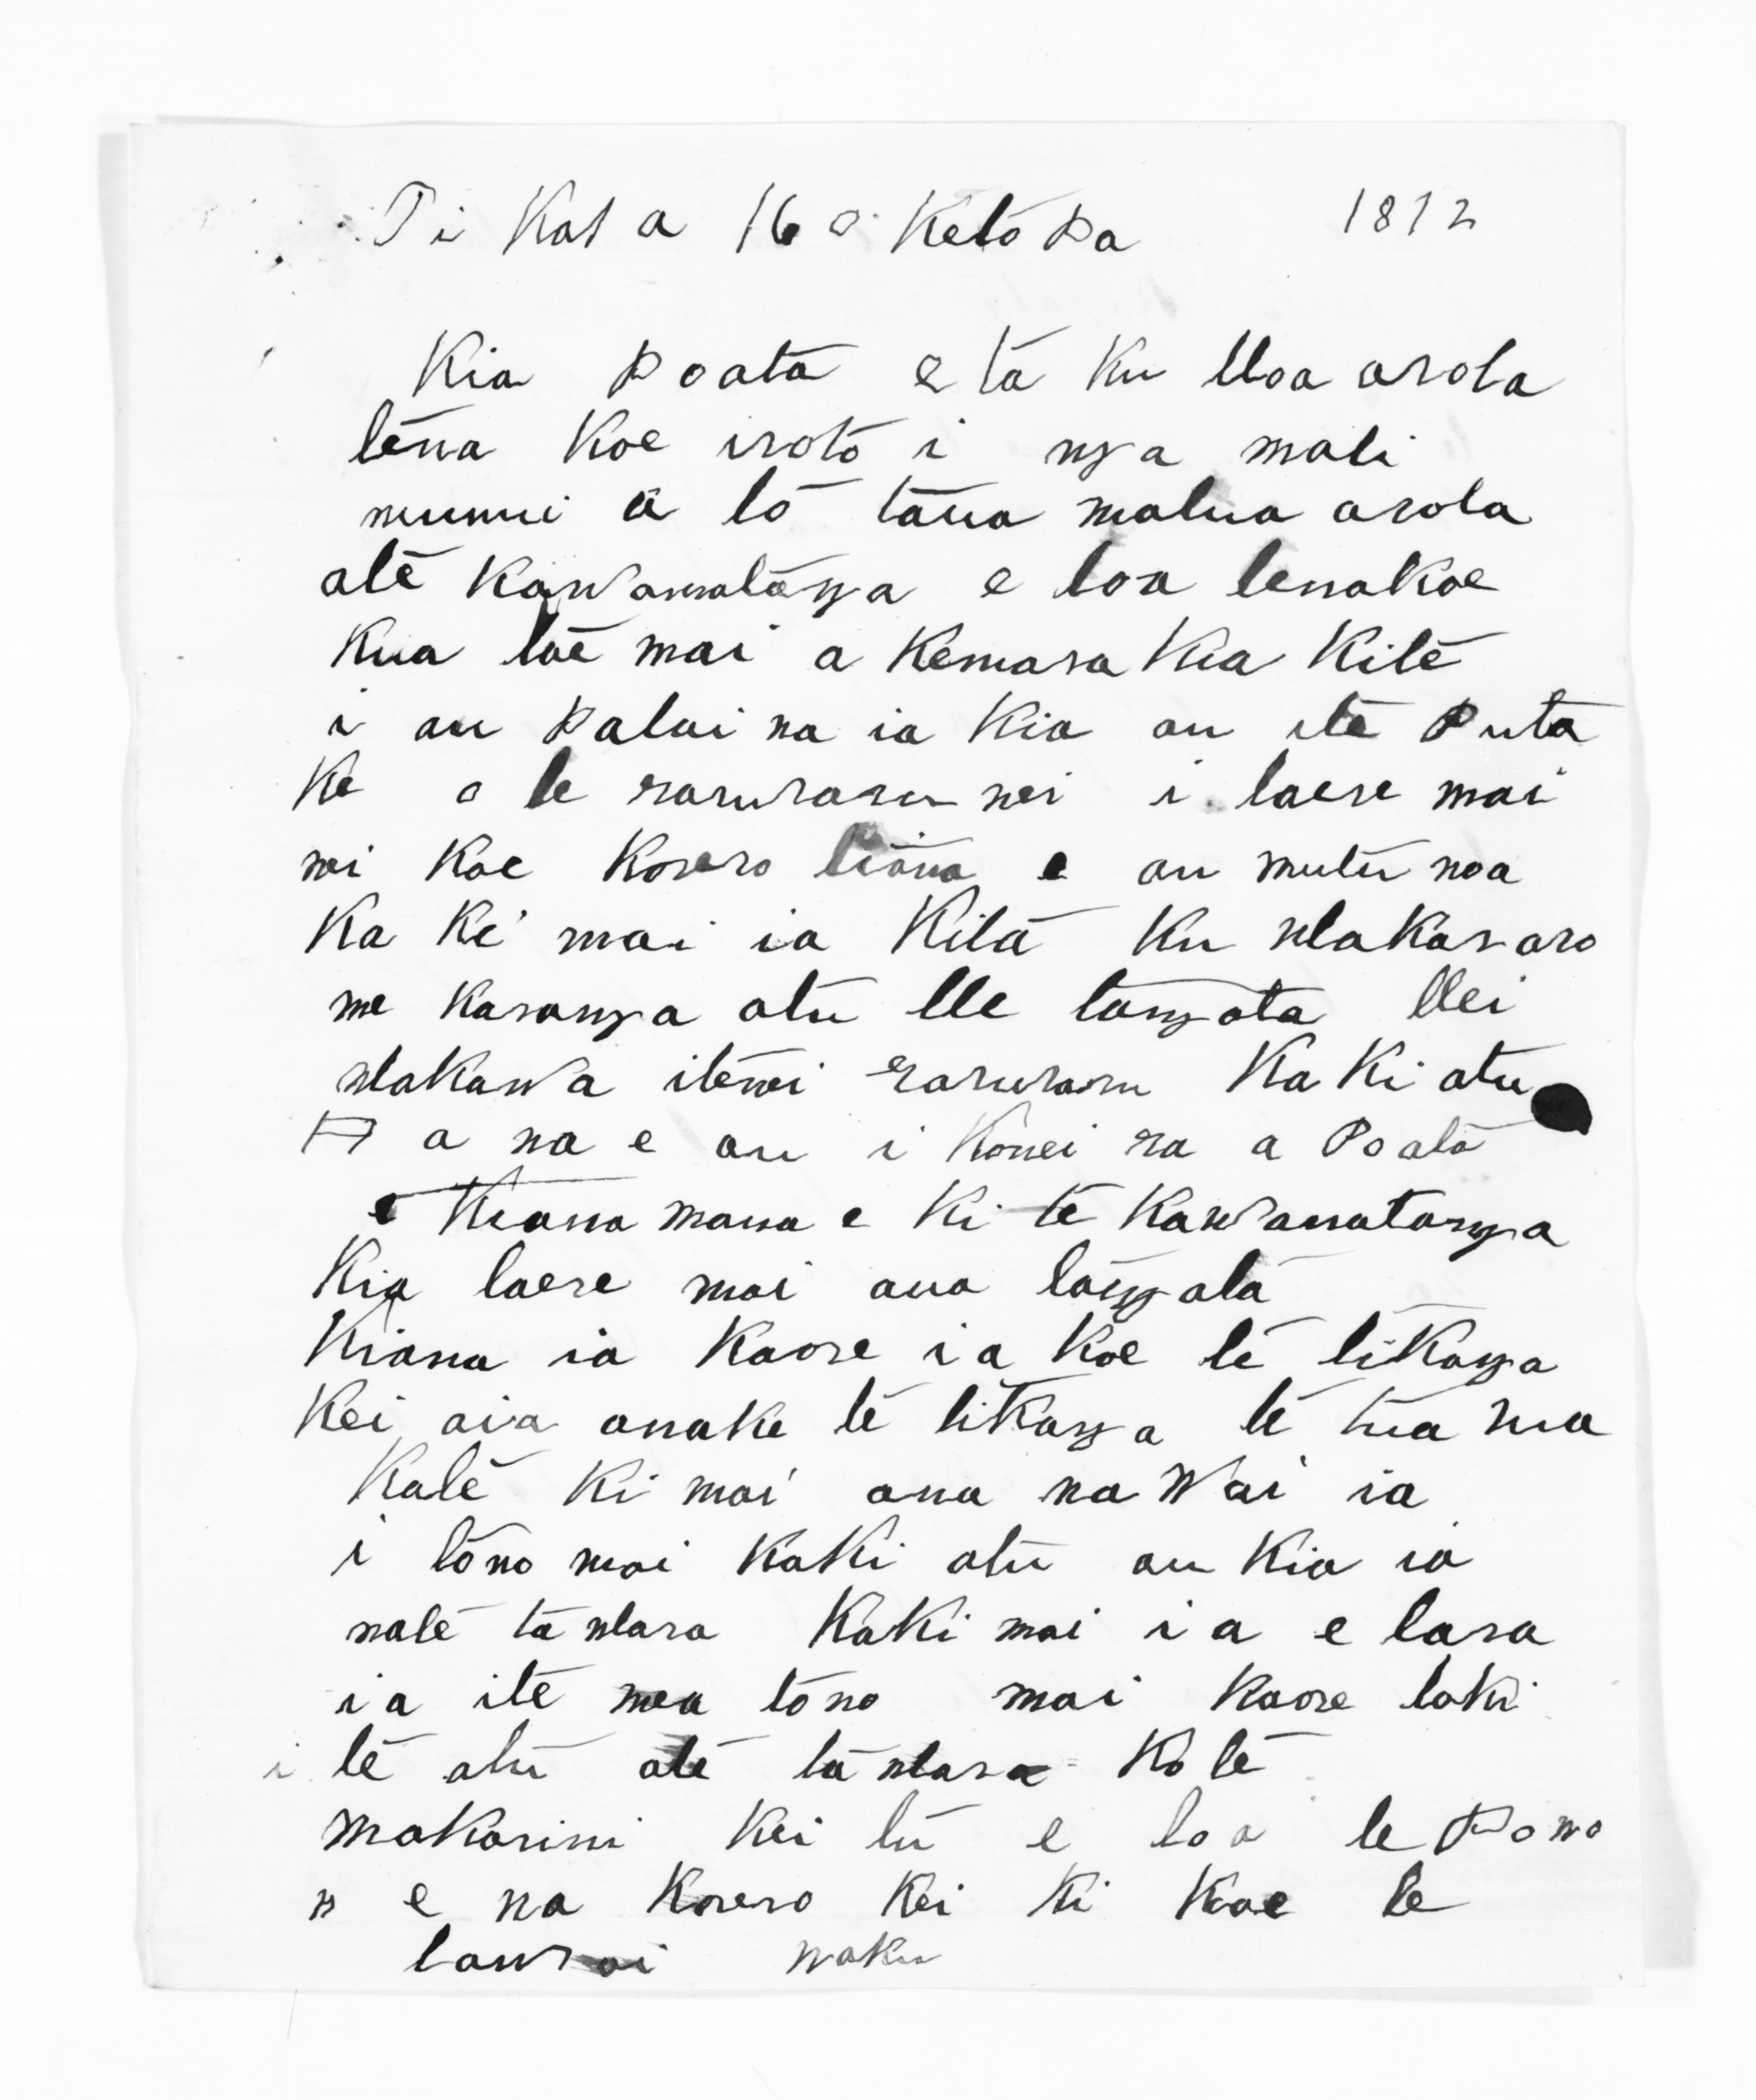 Ti Kata 16 o Ketopa 1872
Kia Poata e ta Ku Hoa arota
tena Koe iroto i nga mati
nunui a to taua matua arota
ate Kawanatanga e Hoa tenakoe
Kua tae mai a Kemara Kia Kite
i au Patai na ia Kia au ite Puta
Ke o te raruraru nei i taere mai
nei Koe Korero tiana e au mutu noa
Ka Ki mai ia Kita Ku wakaaro
me Karanga atu He tangata Hei
wakawa itenei raruraru Ka Ki atu
H a na e au i Konei ra a Poata
e Kiana mana e Ki te Kawanatanga
Kia taere mai ana tangata
Kiana ia Kaore ia Koe te tikanga
Kei aia anake te tikanga te tua rua
Kate Ki mai ana na Wai ia
i tono mai KaKi atu au Kia ia
nate ta wara KaKi mai ia e tara
ia ite mea tono mai Kaore taki
i te atu ate ta wara Ko te
makarini Kei tu e Hoa te Pono
n e na Korero Kei Ki Koe te
tawrai naku